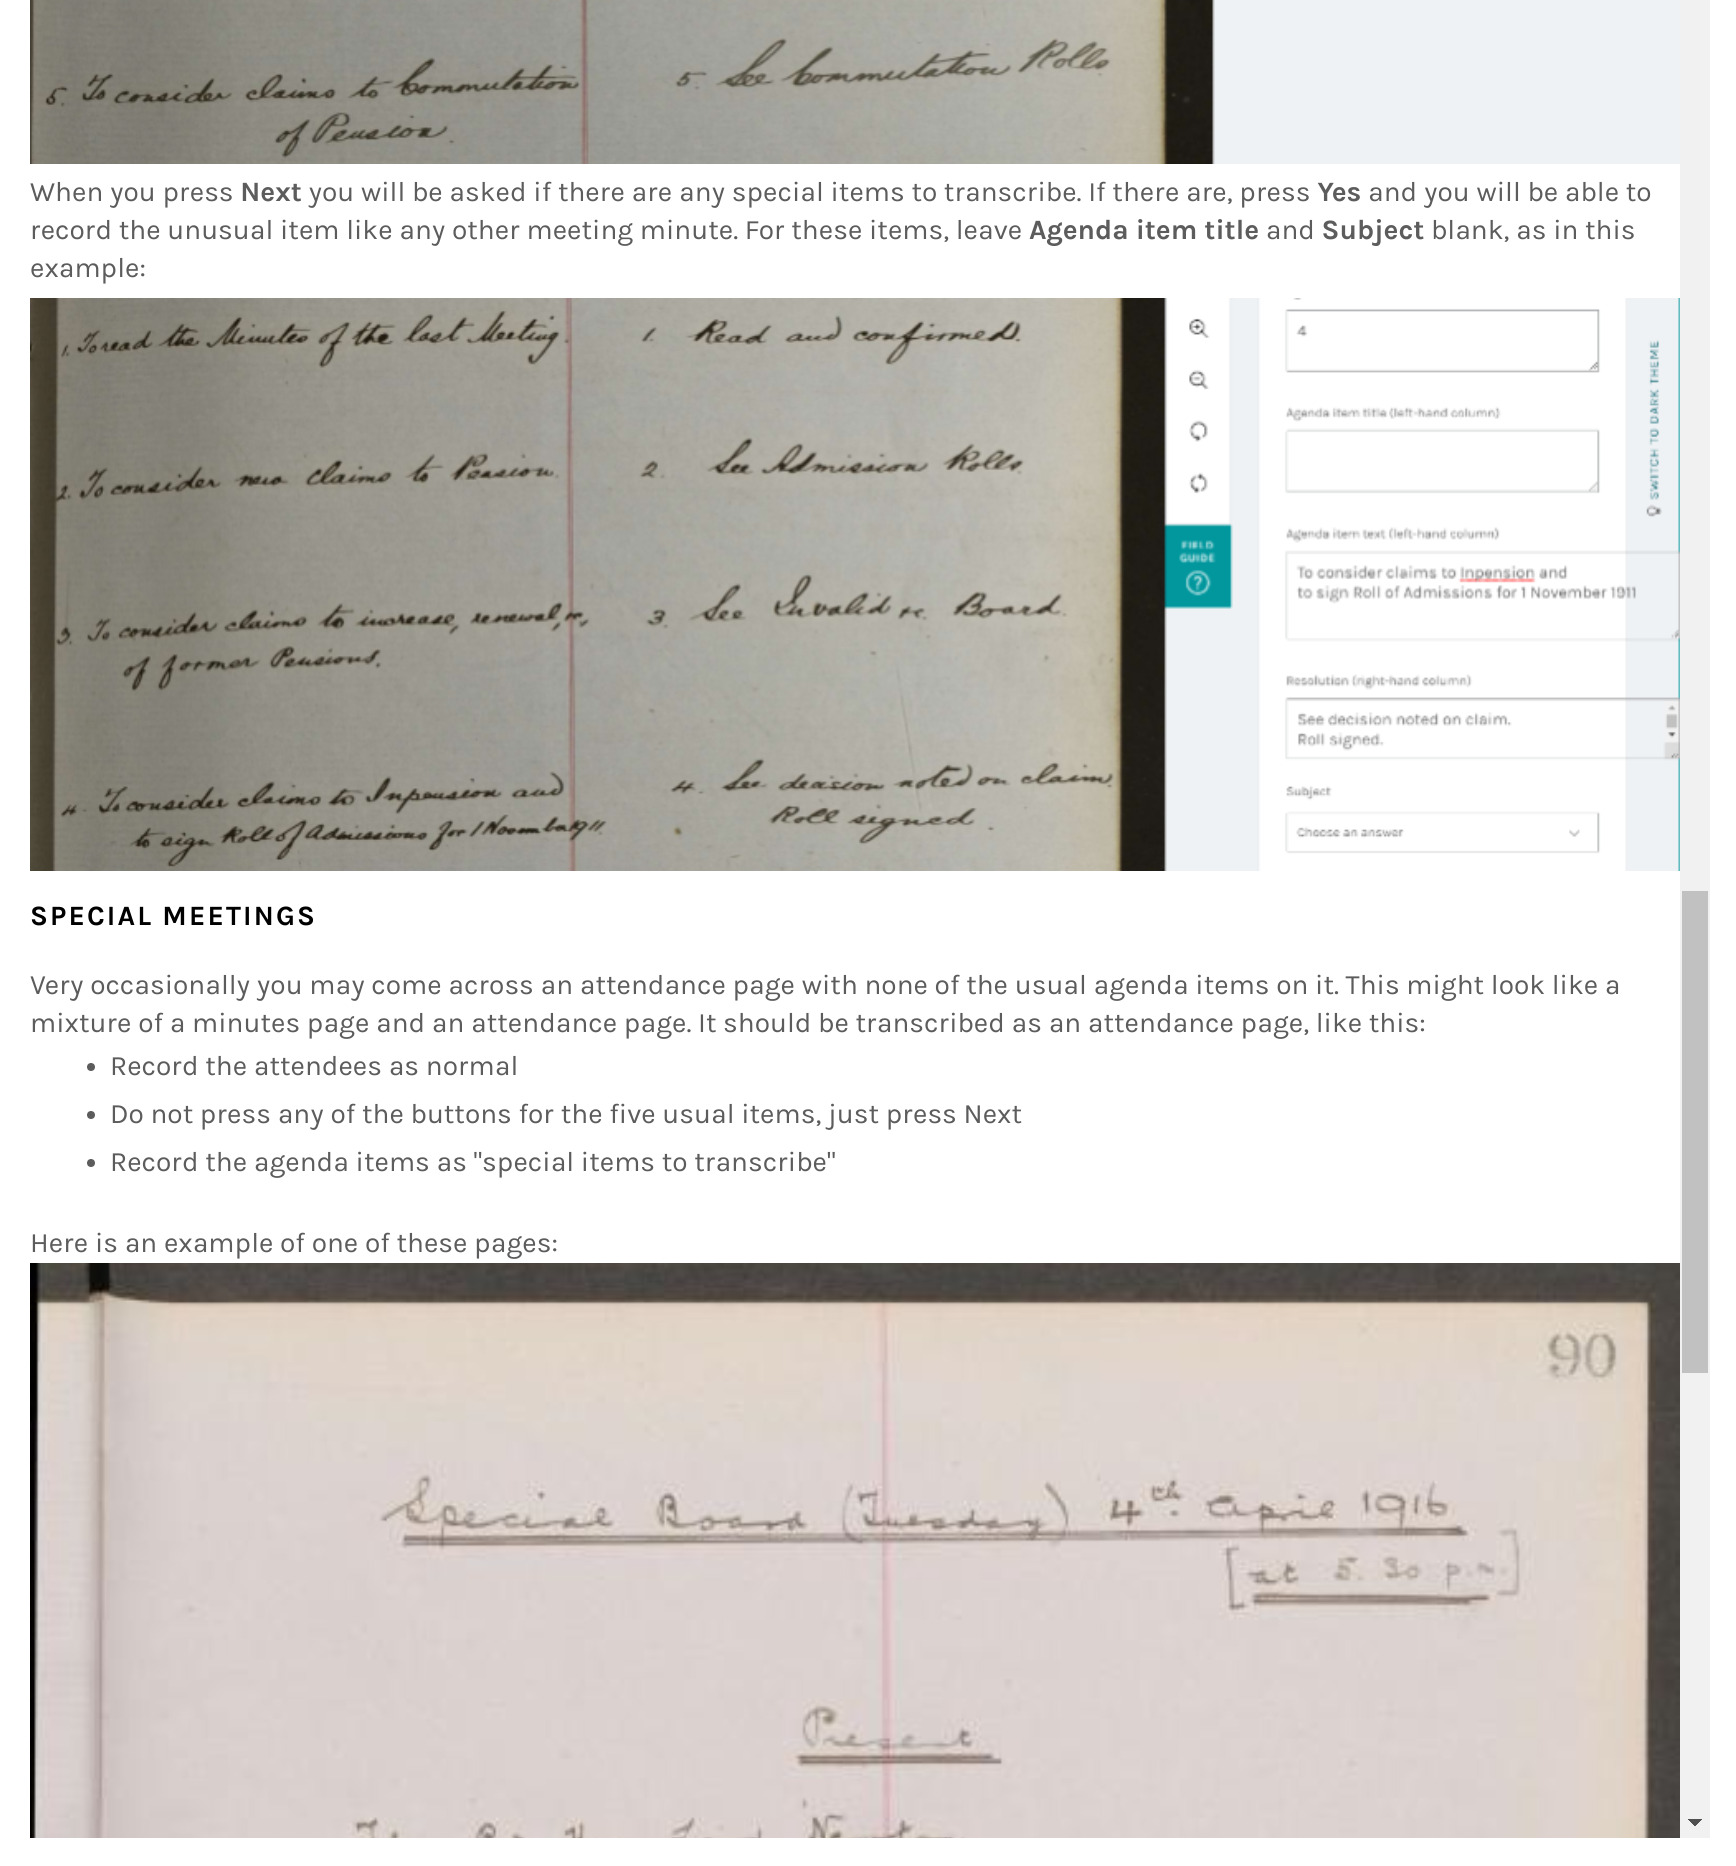 5. To consider claims to Commutation
of Pension.
5. See Commutation Rolls
When you press Next you will be asked if there are any special items to transcribe. If there are, press Yes and you will be able to
record the unusual item like any other meeting minute. For these items, leave Agenda item title and Subject blank, as in this
example:
1. To read the Minutes of the last Meeting.
1. Read and confirmed.
2. To consider new claims to Pension.
2. See Admission Rolls.
3. To consider claims to increase, renewal, &c,
of former Pensions.
3. See Invalid &c. Board.
4. To consider claims to Inpension and
to sign Roll of Admissions for 1 November 1911.
4. See decision noted on claim.
Roll signed.
4
Agenda item title (left-hand column)
Agenda item text (left-hand column)
To consider claims to Inpension and
to sign Roll of Admissions for 1 November 1911
Resolution (right-hand column)
See decision noted on claim.
Roll signed.
Subject
Choose an answer
FIELD
GUIDE
?
SWITCH TO DARK THEME
SPECIAL MEETINGS
Very occasionally you may come across an attendance page with none of the usual agenda items on it. This might look like a
mixture of a minutes page and an attendance page. It should be transcribed as an attendance page, like this:
• Record the attendees as normal
• Do not press any of the buttons for the five usual items, just press Next
• Record the agenda items as "special items to transcribe"
Here is an example of one of these pages:
90
Special Board (Tuesday) 4th. April 1916
[at 5.30 p.m.]
Present